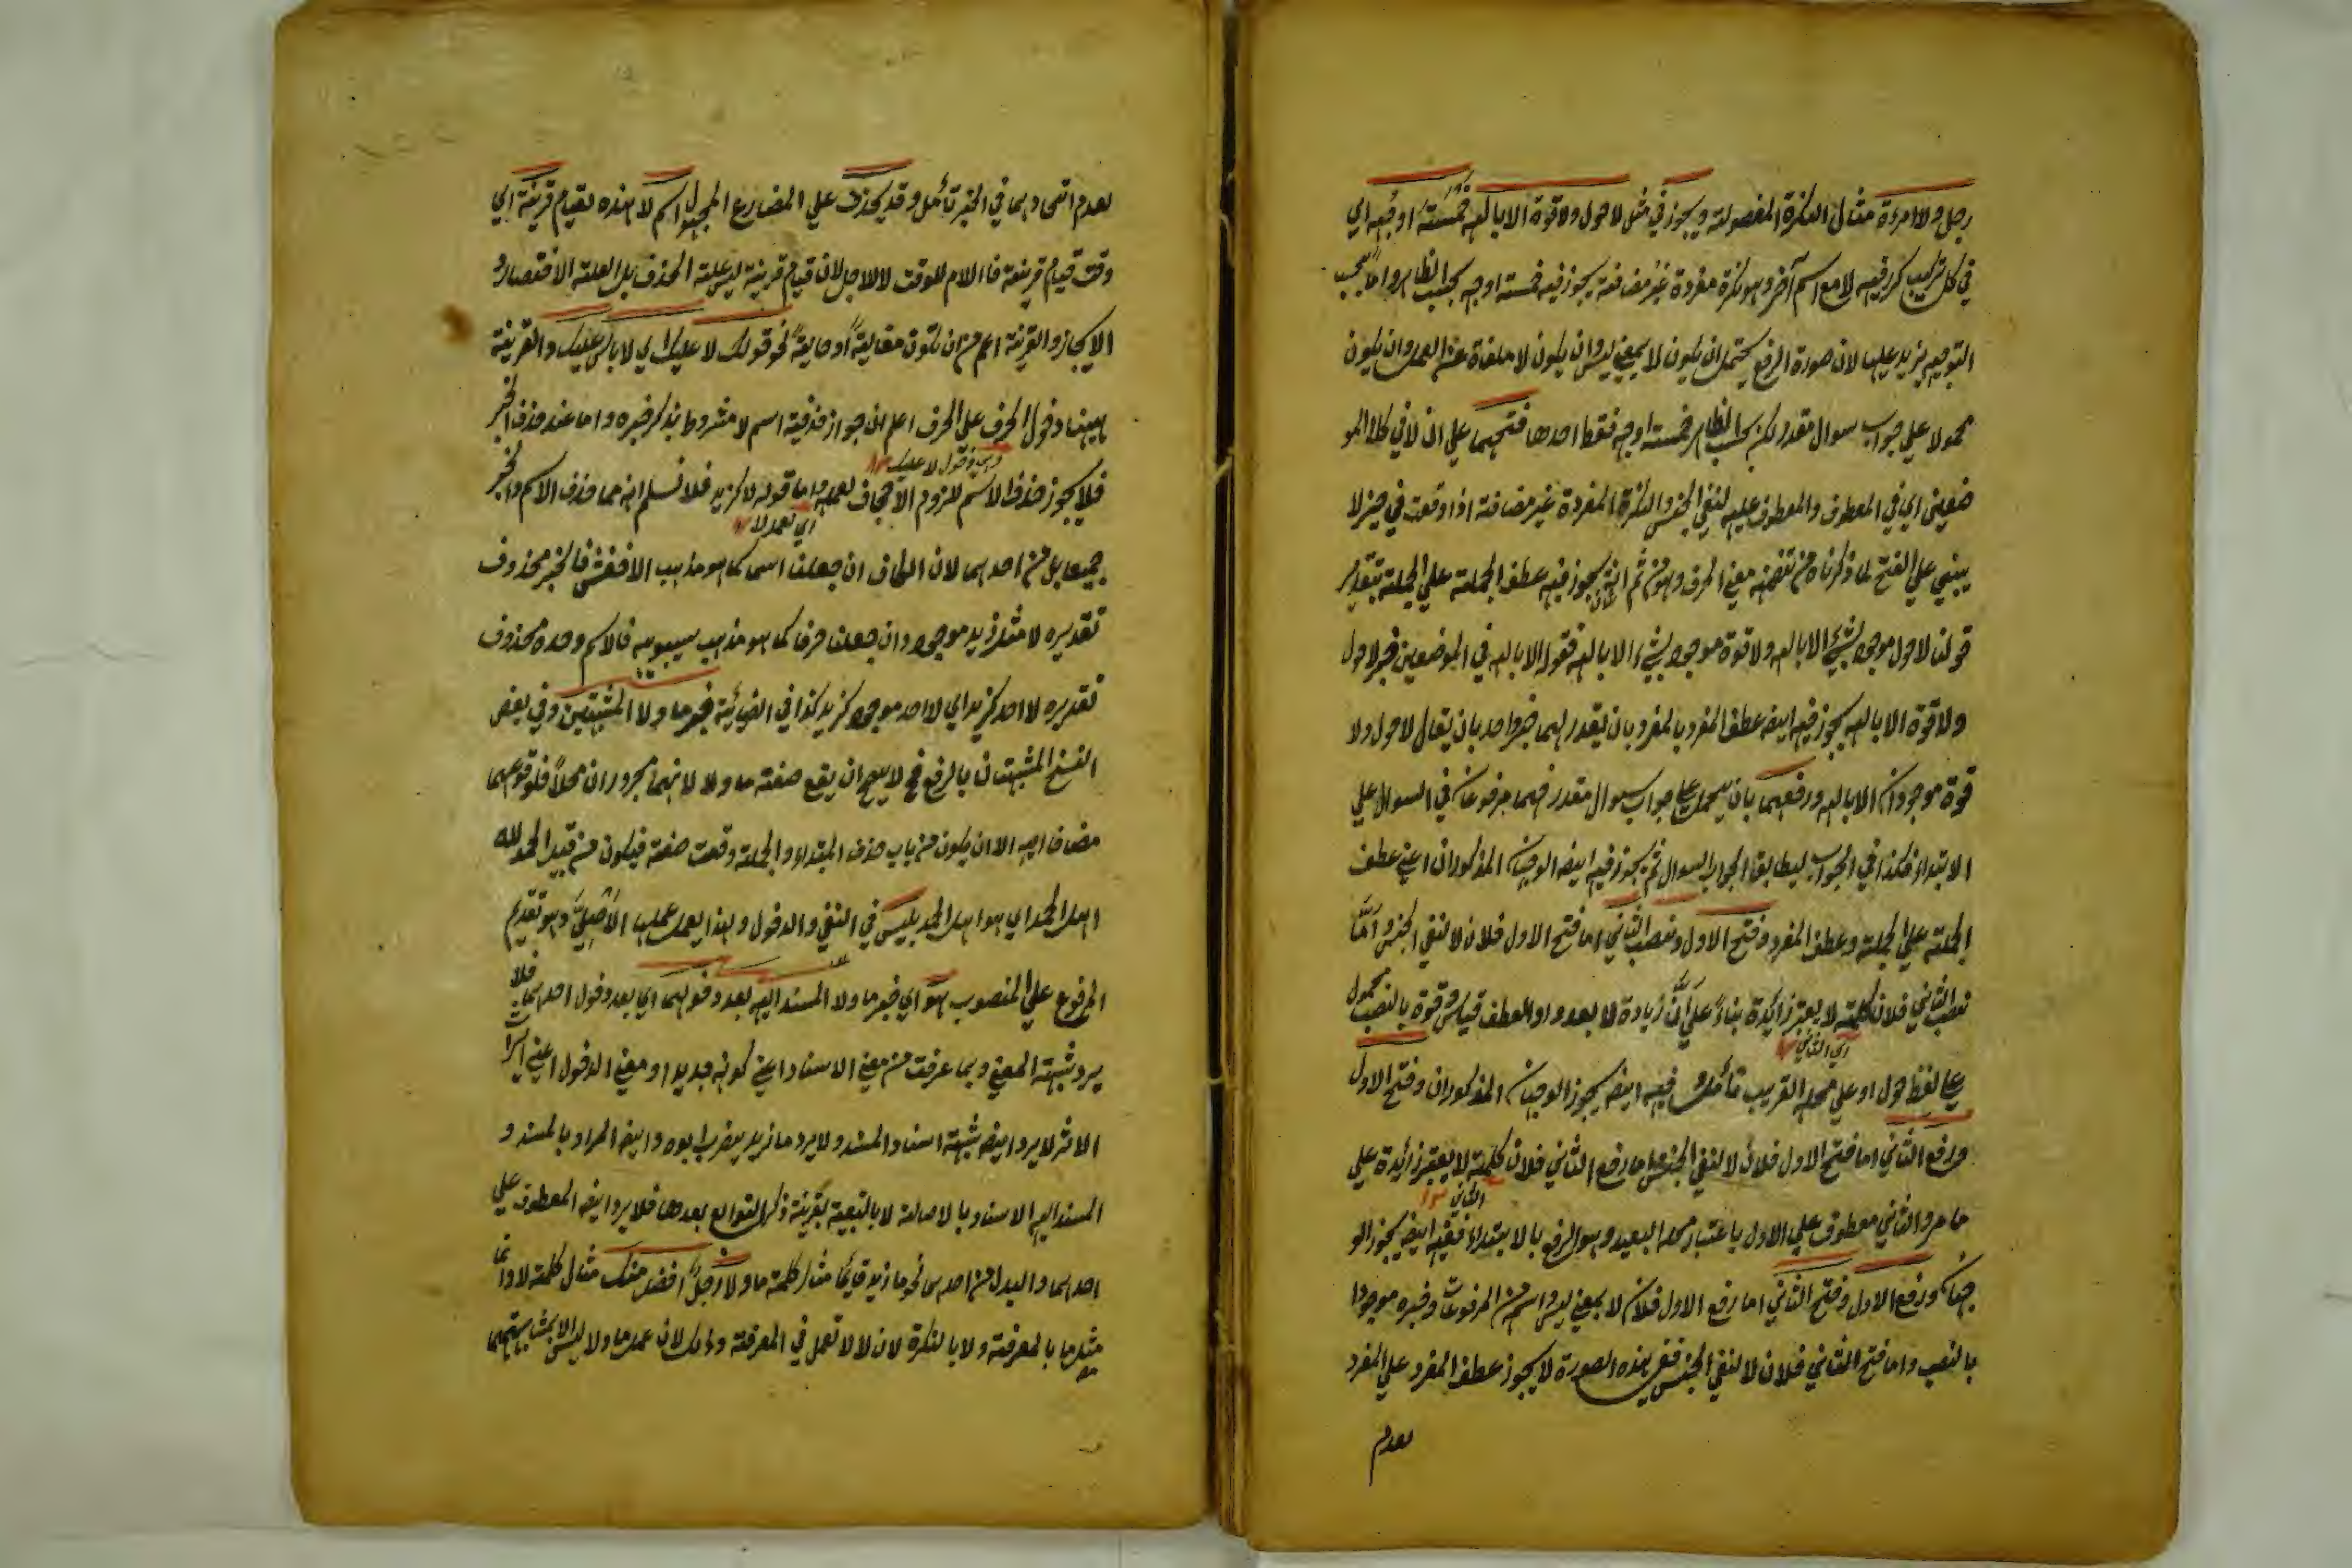 رجل ولا امرءة مثال النكرة المفصولة ويجوز في مثل لا حول ولا قوة الا بالله خمسة اوجه اي
في كل تركيب كرر فيه لا مع اسم آخر وهو نكرة مفردة غير مضافة يجوز فيه خمسة اوجه بحسب الظاهر واما بحسب
التوجيه يزيد عليها لان صورة الرفع يحتمل ان يكون لا بمعني ليس وان يكون لا ملغاة عن العمل وان يكون
محمولا علي جواب سوال مقدر لكن بحسب الظاهر خمسة اوجه فقط احدها فتحهما علي ان لا في كلا المو
ضعين اي في المعطوف والمعطوف عليه لنفي الجنس والنكرة المفردة غير مضافة اذا وقعت في حيز لا
يبني علي الفتح لما ذكرناه من تضمنه معني الحرف وهو من ثم انه يجوز فيه عطف الجملة علي الجملة بتقدير
قولنا لا حول موجود بشيء الا بالله ولا قوة موجود بشيء الا بالله فقوله الا بالله في الموضعين خبر لا حول
ولا قوة الا بالله يجوز فيه ايضه عطف المفرد بالمفرد بان يقدر لهما خبر واحد بان يقال لا حول ولا
قوة موجودان الا بالله ورفعهما بان يحمل علي جواب سوال مقدر فهما مرفوعان في السوال علي
الابتداء فكذا في الجواب ليطابق الجواب السوال ثم يجوز فيه ايضه الوجهان المذكوران اعني عطف
الجملة علي الجملة وعطف المفرد وفتح الاول ونصب الثاني اما فتح الاول فلان لا لنفي الجنس واما
نصب الثاني فلان كلمة لا يعتبر زائدة بناء علي ان زيادة لا بعد واو العطف قياس وقوة بالنصب محمول
اي الثاني
علي لفظ حول او علي محله القريب فيه ايضه يجوز الوجهان المذكوران وفتح الاول
ورفع الثاني اما فتح الاول فلان لا لنفي الجنس اما رفع الثاني فلان كلمة لا يعتبر زائدة علي
الثاني
ما مر والثاني معطوف علي الاول باعتبار محله البعيد وهو الرفع بالابتداء ففيه ايضه يجوز الو
جهان ورفع الاول وفتح الثاني اما رفع الاول فلان لا بمعني ليس واسم من المرفوعات وخبره موجودا
بالنصب واما فتح الثاني فلان لا لنفي الجنس ففي هذه الصورة لا يجوز عطف المفرد علي المفرد
بعدم
بعدم اتحادهما في الخبر تأمل وقد يحذف علي المضارع المجهول اسم لا هذه بقيام قرينة اي
وقت قيام قرينة فاللام للوقت لا للاجل لان قيام قرينة ليس علة الحذف بل العلة الاختصار و
الايجاز والقرينة اعم من ان تكون مقالية او حالية نحو قولك لا عليك اي لا باس عليك والقرينة
ههنا دخول الحرف علي الحرف اعلم ان جواز حذفية اسم لا مشروط بذكر خبره واما عند حذف الخبر
لا عليك
فلا يجوز حذف الاسم للزوم الاجحاف بعده واما قوله لا كزيد فلا نسلم انه مما حذف الاسم والخبر
اي بعد لا
جميعا بل من احدهما لان الكاف ان جعلنا اسما كما هو مذهب الاخفش فالخبر محذوف
تقديره لا مثل زيد موجود وان جعلنا حرفا كما هو مذهب سيبويه فالاسم وحده محذوف
تقديره لا احد كزيد اي لا احد موجود كزيد كذا في الضيائية خبر ما ولا المشبهتين وفي بعض
النسخ المشبهتان بالرفع فح لا يصح ان يقع صفة ما ولا لانهما مجروران محلا فلوقوعهما
مضافا اليه الا ان يكون من باب حذف المبتداء والجملة وقعت صفة فيكون من قبيل الحمد لله
اهل الحمد اي هو اهل الحمد بليس في النفي والدخول ولهذا يعمل عملها الاصلي وهو تقديم
المرفوع علي المنصوب هو اي خبر ما ولا المسند اليه بعد دخولهما اي بعد دخول احدهما فلا
يرد شبهة المعني وبما عرفت من معني الاسناد اعني كونه جديدا ومعني الدخول اعني ايراث
الاثر لا يرد ايضه شبهة اسناد المسند ولا يرد ما زيد يضرب ابوه وايضه المراد بالمسند و
المسند اليه الاسناد بالاصالة لا بالتبعية بقرينة ذكر التوابع بعدها فلا يرد ايضه المعطوف علي
احدهما والبدل من احدهما نحو ما زيد قائما مثال كلمة ما ولا رجل افضل منك مثال كلمة لا وانما
مثل ما بالمعرفة ولا بالنكرة لان لا لا تعمل في المعرفة وذلك لان عمل ما ولا ليس الا بمشابهتهما